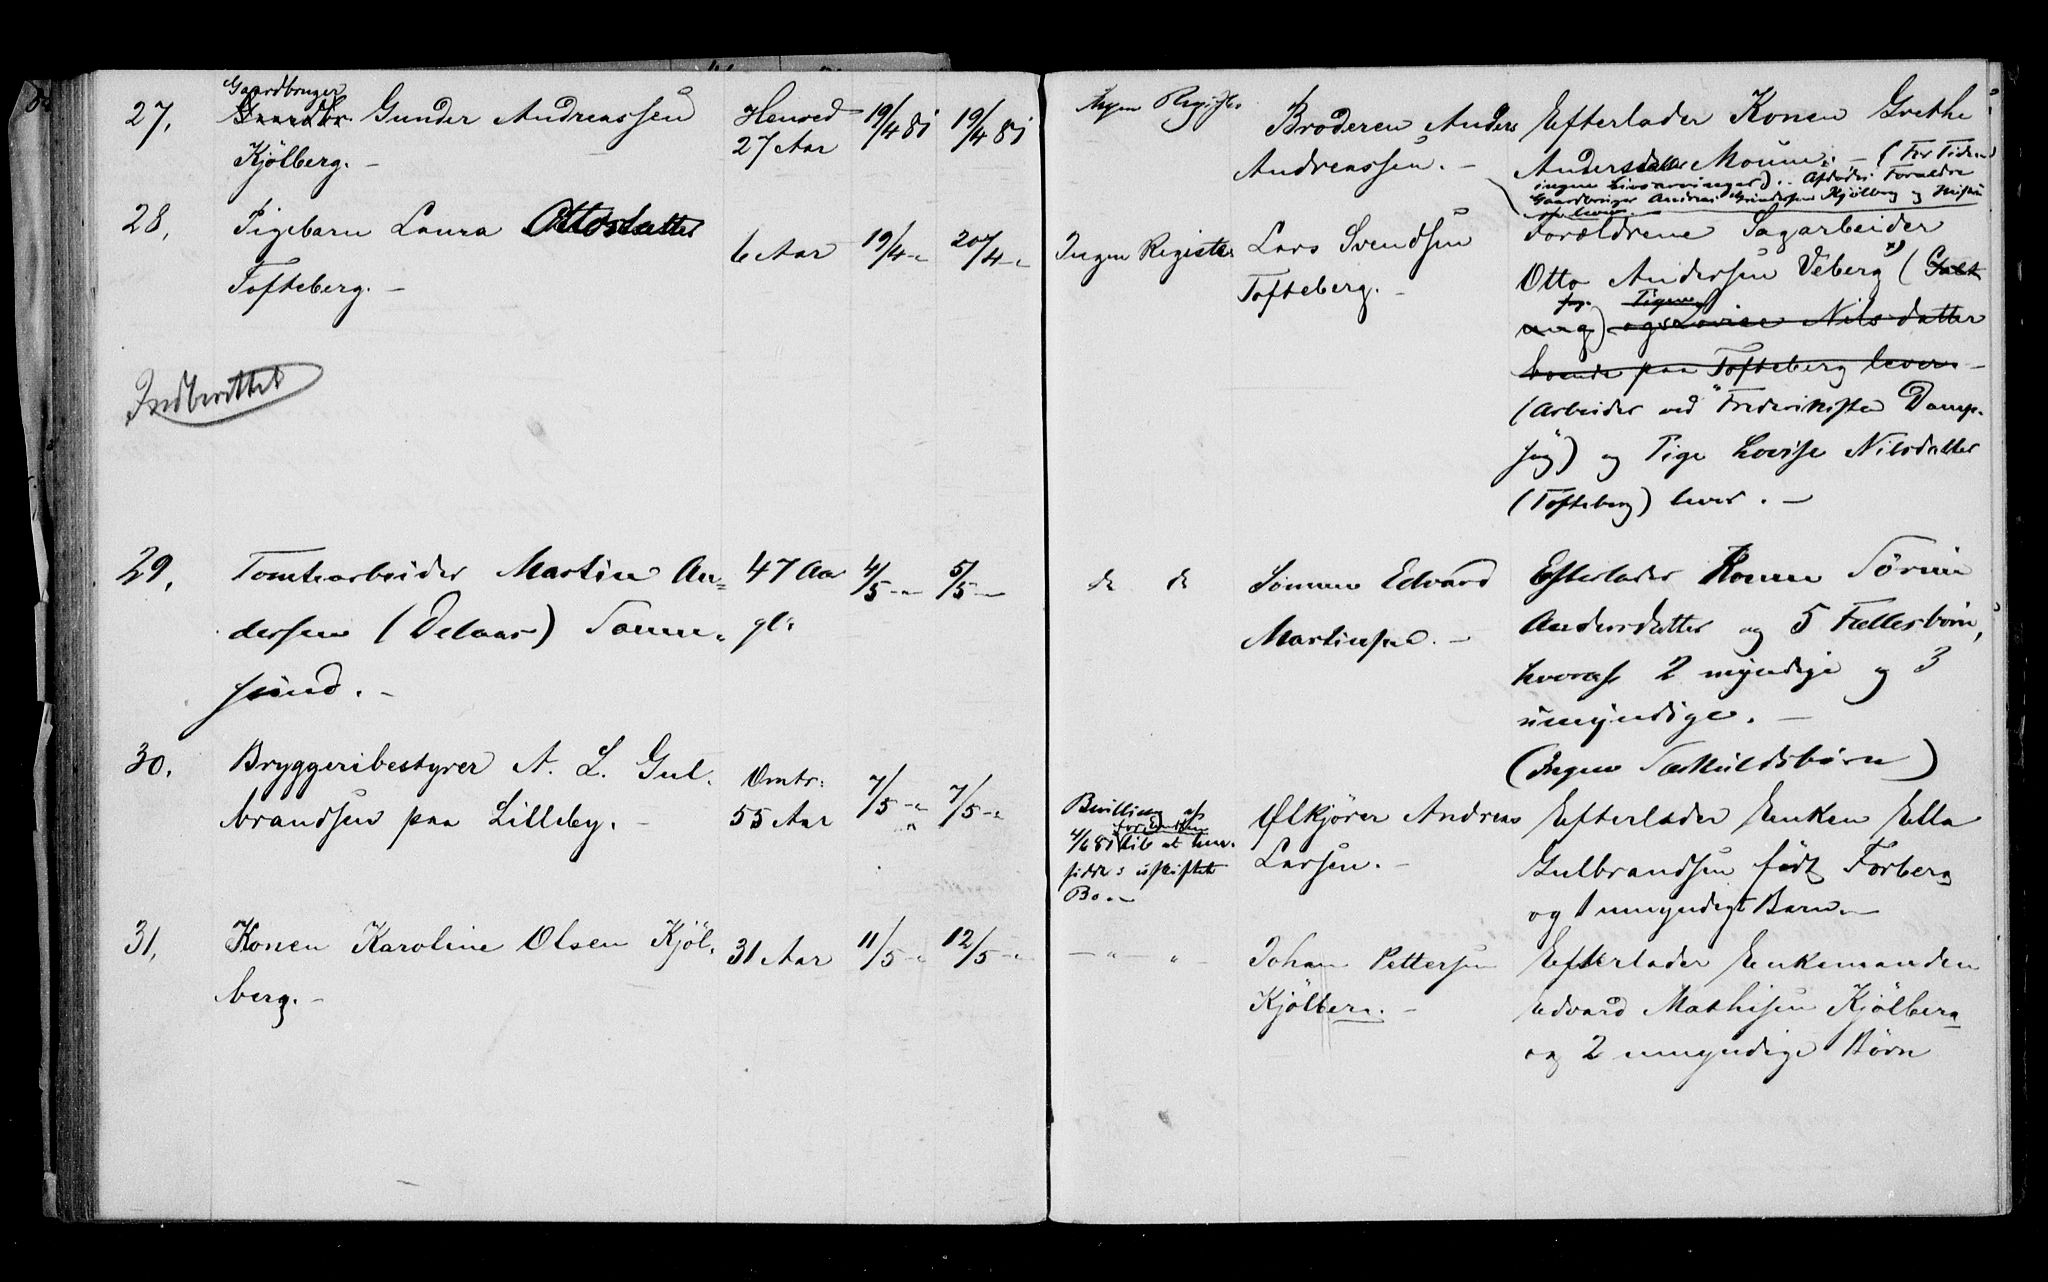 27, Gaardbruger
Gunder Andreassen Henved 19/4 81 19/4 81 Ingen Register Broderen Anders Efterlader Konen Grethe
Kjölberg. - 27 Aar Andreassen. - Andersdatter Moum. - (For Tiden
ingen Livsarvinger). Afdødes Forældre
Gaardbruger Andreas Gundersen Kjölberg og Hustru
28, Pigebarn Laura Ottosdatter 6 Aar 19/4 -" 20/4 -" Ingen Register Lars Svendsen Forældrene Sagarbeider
Tofteberg. - Tofteberg. - Otto Andersen Veberg x) (
Pigen
ung) og Lovise Nilsdatter
Indberettet boende paa Tofteberg lever -
(Arbeider ved "Frederiksten Damp-
sag") og Pige Lovise Nilsdatter
(Tofteberg) lever. -
29, Tomtearbeider Martin An= 47 Aar 4/5 -" 5/5 -" do do Sønnen Edvard Efterlader Konen Sörine
dersen ( ) gl: Martinsen. - Andersdatter og 5 Fællesbørn,
sund. - hvoraf 2 myndige og 3
umyndige. -
(Ingen Særkuldsbørn)
30, Bryggeribestyrer A. L. Gul- Omtr: 7/5 -" 7/5 -" Bevilling af Ølkjører Andreas Efterlader Enken Ella
brandsen paa Lilleby. - 55 Aar 4/6 81 for Enken til at hen- Larsen. - Gulbrandsen født Forberg
sidde i uskiftet og 1 umyndigt Barn. -
Bo. -
31, Konen Karoline Olsen Kjöl- 31 Aar 11/5 -" 12/5 -" - " - " - Johan Pettersen Efterlader Enkemanden
berg. - Kjölberg. - Edvard Mathisen Kjölberg
og 2 umyndige Børn